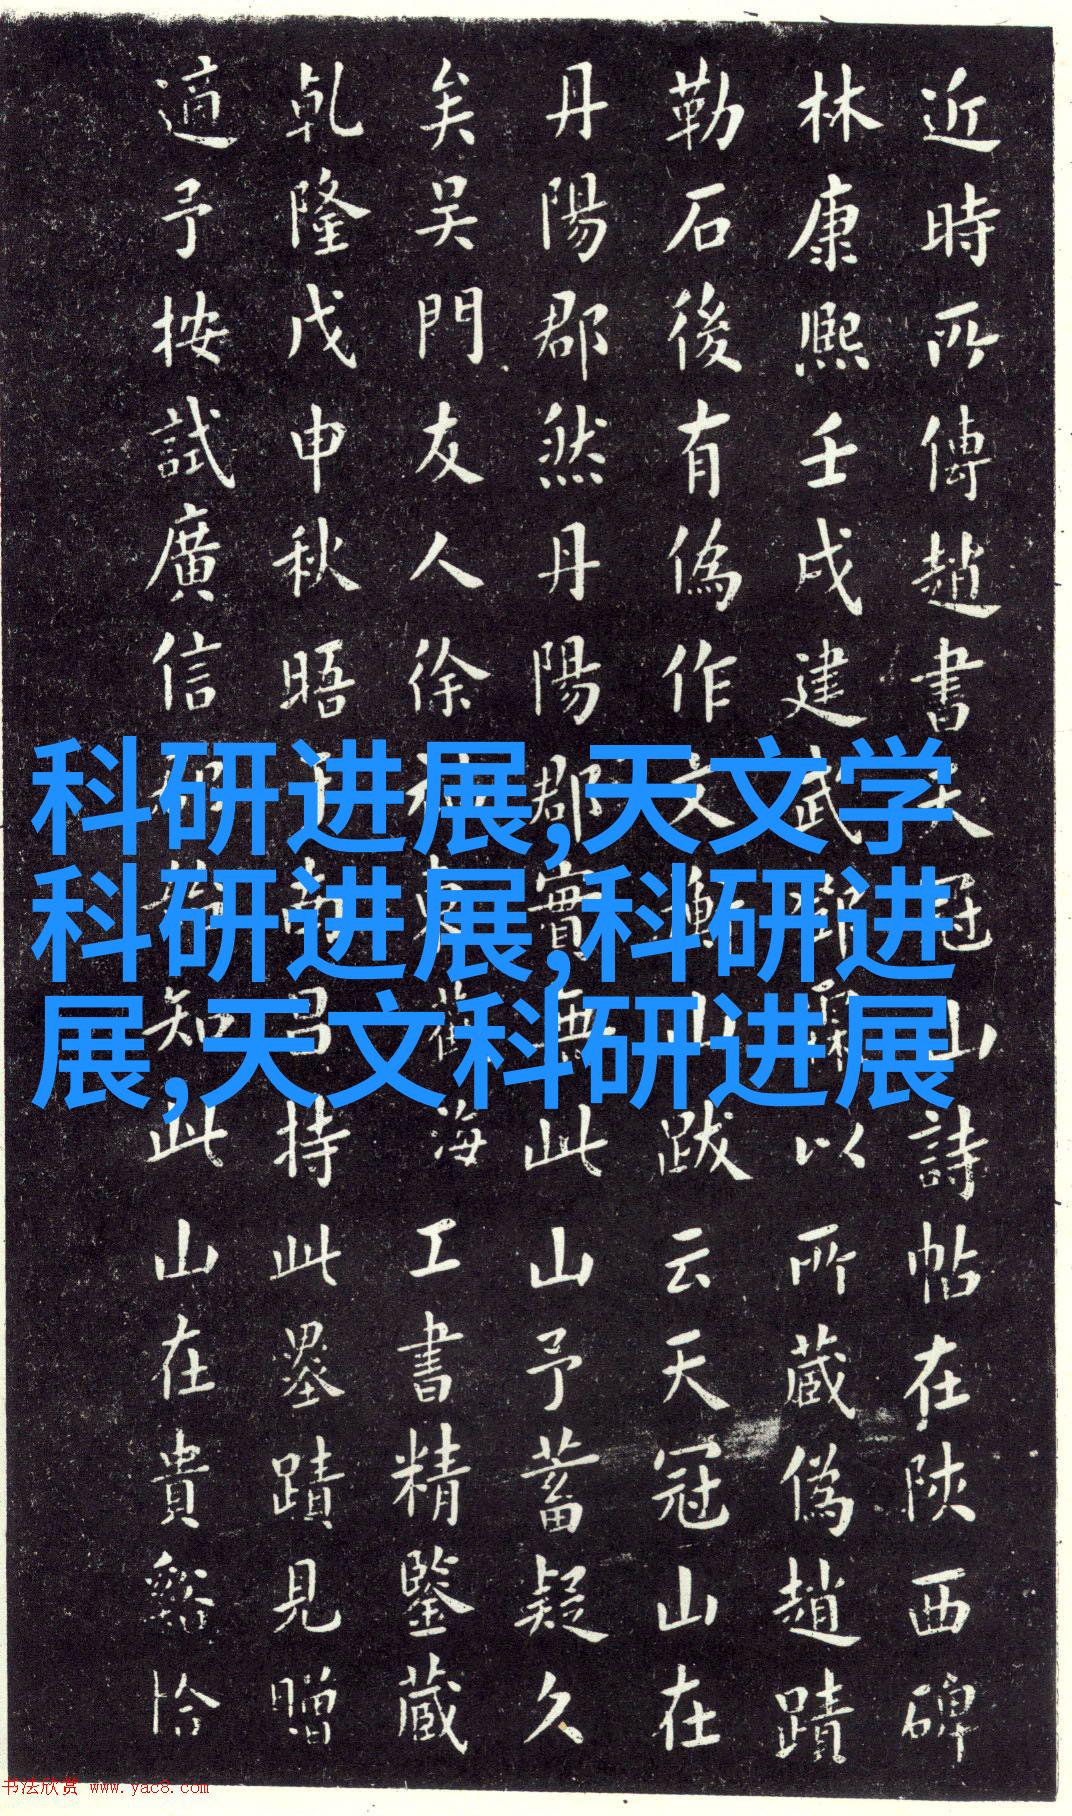 近時所傳趙書天冠山詩帖在陝西碑
林康熙壬戌建武以所藏偽趙蹟
勒石後有偽作文衡山跋云天冠山在
丹陽郡然丹陽郡實無此山予蓄疑久
矣吳門友人徐海工書精鑒藏
乹隆戊申秋晤于南昌持此墨蹟見贈
適予按試廣信知此山在貴谿恰
科研进展,天文学
科研进展,科研进
展,天文科研进展
书法欣赏 www.yac8.com